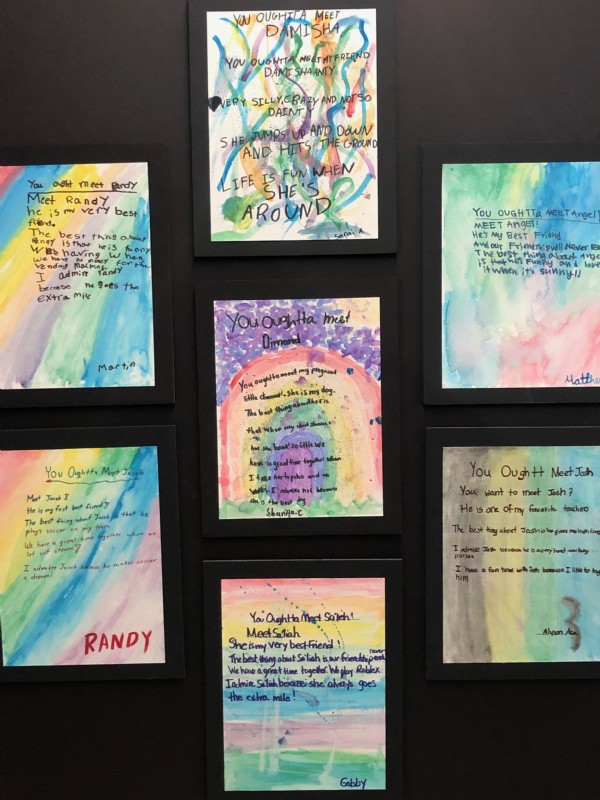 YOU OUGHTTA MEET
DAMISHA
YOU OUGHTTA MEET MY FRIEND
DAMISHAANTY
VERY SILLY, CRAZY AND NOT SO
DAINTY
SHE JUMPS UP AND DOWN
AND HITS THE GROUND
LIFE IS FUN WHEN
SHE'S
AROUND
Sarai A.
You ought meet Randy
Meet Randy
he is my very best
The best thing about
Randy is that he is funny
having when
we have no money for the
vending
I admire randy
because he goes the
extra mile
Martin
YOU OUGHTTA MEET Angel!
MEET Angel!
He's My Best Friend
And our Friendship will Never End
The best thing about Angel
is that he's funny and
it when it's sunny!!
Matthew
You Oughtta meet
Dimond
You oughtta meet my
little diamond. she is my dog.
The best thing about her is
that when my
her she so little we
have a great time together when
I take her to
I admire her because
is the best dog
You Oughtta Meet Jacob
Meet Jacob!
He is my first best friend
The best thing about Jacob is that he
plays soccer on my team
We have a great time together when we
I admire Jacob because he makes soccer
a dream!
RANDY
You Oughtt Meet Josh
You want to meet Josh?
He is one of my favorite teacher
The best thing about Josh is he gives me high fives
I admire Josh because he is a very hard working
person
I have a fun time with Josh because I like to
him
You Oughtta Meet Sa'liah!
Meet Sa'liah
She is my very best friend!
The best thing about Sa'liah is our friendship never end
We have a great time together. We play Roblox
I admire Sa'liah because she always goes
the extra mile!
Gabby